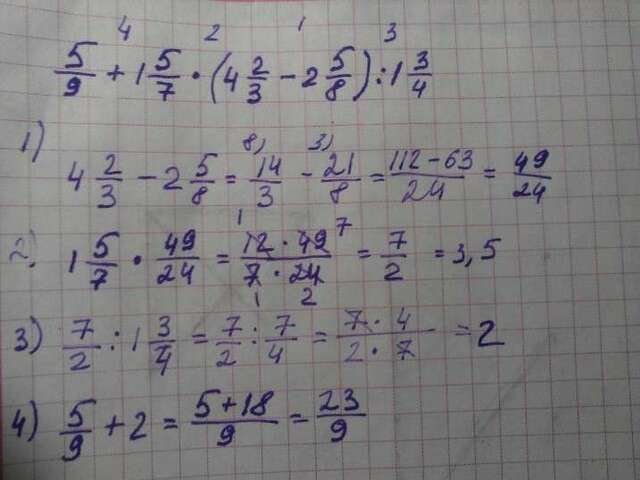 4 2 1 3
5/9 + 1 5/7 · (4 2/3 - 2 5/8) : 1 3/4
1) 4 2/3 - 2 5/8 = 8) 14/3 - 3) 21/8 = 112 - 63/24 = 49/24
2) 1 5/7 · 49/24 = 1 12 · 49 7/7 · 24 1 2 = 7/2 = 3,5
3) 7/2 : 1 3/4 = 7/2 : 7/4 = 7 · 4/2 · 7 = 2
4) 5/9 + 2 = 5 + 18/9 = 23/9